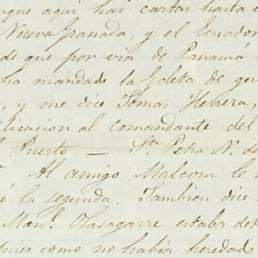 que aqui hai cartas hasta e
Nueva Granada, y el Ecuador
de que por via de Panamá
ha mandado la Goleta de gu
, y me dice Tomas Herrera,
licacion al comandante del
Puerto. — Sr. Peña N. de
Al amigo Malcom le
é la segunda. Tambien dice
Man. Olasagarre estaba de
como no habia heredad